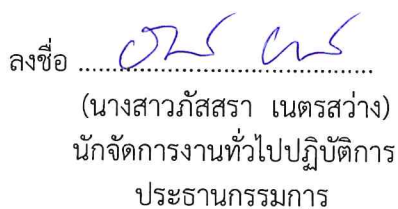 ลงชื่อ ........................................
(นางสาวภัสสรา เนตรสว่าง)
นักจัดการงานทั่วไปปฏิบัติการ
ประธานกรรมการ